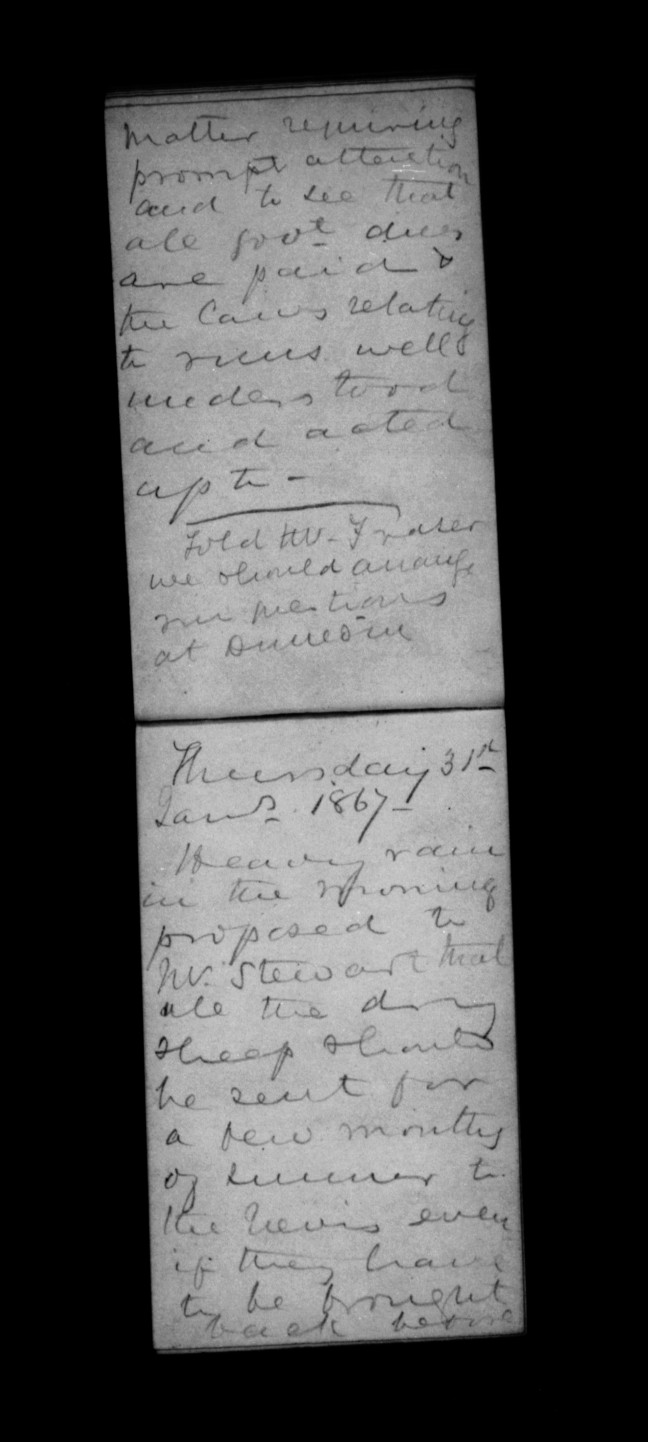 matter requiring
prompt attention
and to see that
all govt dues
are paid &
the Laws relating
to runs well
understood
and acted
up to -
Told Mr. Fraser
we should arrange
run questions
at Dunedin
Thursday 31st
Jany. 1867 -
Heavy rain
in the morning
proposed to
Mr. Stewart that
all the dry
sheep should
be sent for
a few months
of summer to
the Nevis even
if they have
to be brought
back before